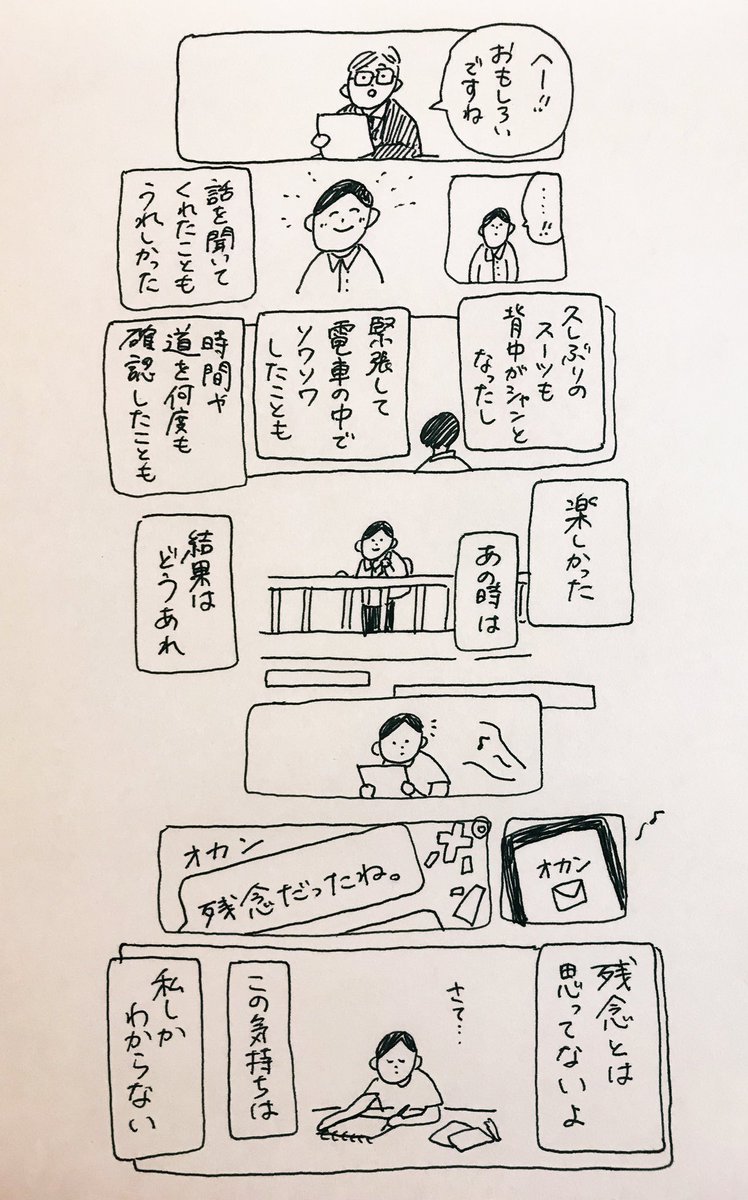 へー!!
おもしろい
ですね
‥‥!!
話を聞いて
くれたことも
うれしかった
久しぶりの
スーツも
背中がシャンと
なったし
緊張して
電車の中で
ソワソワ
したことも
時間や
道を何度も
確認したことも
楽しかった
あの時は
結果は
どうあれ
オカン
オカン
残念だったね。
残念とは
思ってないよ
さて…
この気持ちは
私しか
わからない